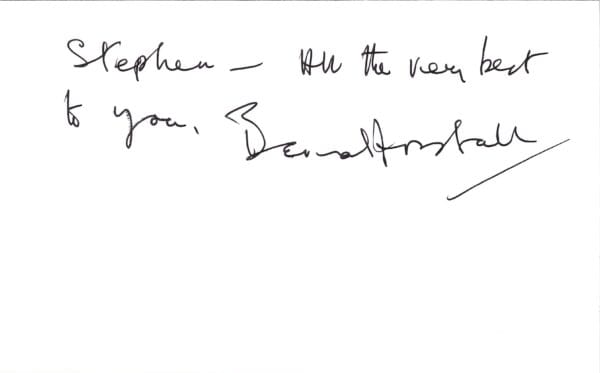 Stephen – All the very best
to you, Bernard Horsfall